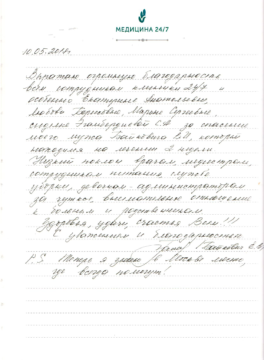 МЕДИЦИНА 24/7
10.05.2017г.
Выражаю огромную благодарность
всем сотрудникам клиники 24/7 и
особенно Екатерине Анатольевне,
Любови Борисовне, Марине Сергеевне,
за спасение
моего мужа который
находился на лечении 2 недели.
Низкий поклон врагам, медсестрам,
сотрудникам питания, службе
уборки, девочкам администраторам
за чуткое, внимательное отношение
к больным и родственникам.
Здоровья, удачи счастья Всем!!!
С уважением и благодарностью
P.S Теперь я знаю в Москве место,
где всегда помогут!